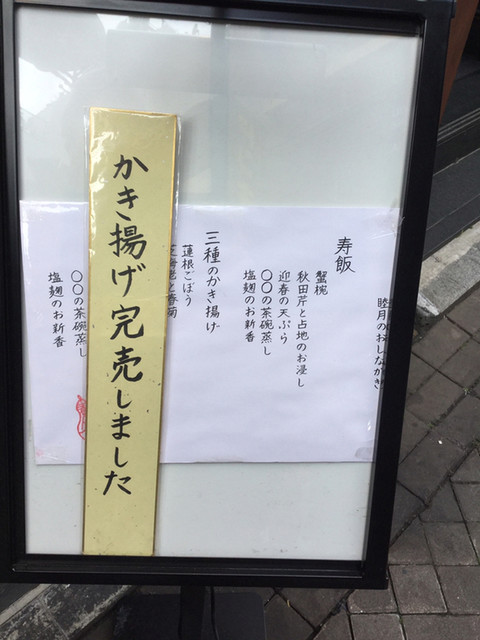 睦月のおしながき
寿飯
蟹椀
秋田芹と占地のお浸し
迎春の天ぷら
〇〇の茶碗蒸し
塩麹のお新香
三種のかき揚げ
蓮根ごぼう
芝海老と春菊
かき揚げ完売しました
〇〇の茶碗蒸し
塩麹のお新香